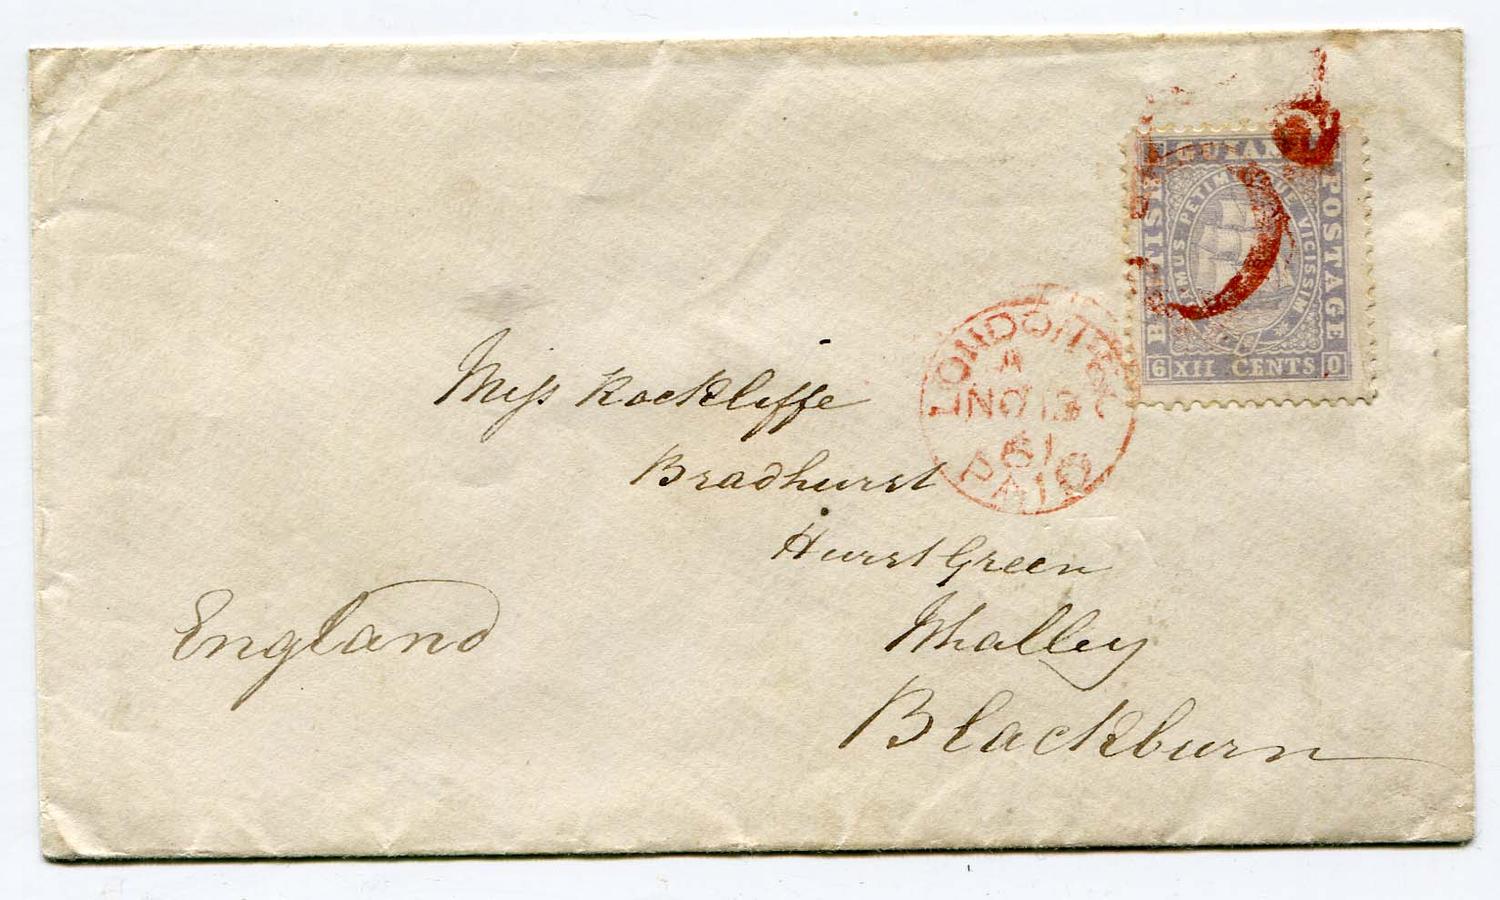 BRITISH
GUIANA
POSTAGE
DAMUS PETIMUSQUE VICISSIM
6 XII CENTS 0
LONDON·EC
A
NO 13
61
PAID
Miss Rockliffe
Bradhurst
Hurst Green
Whalley
Blackburn
England